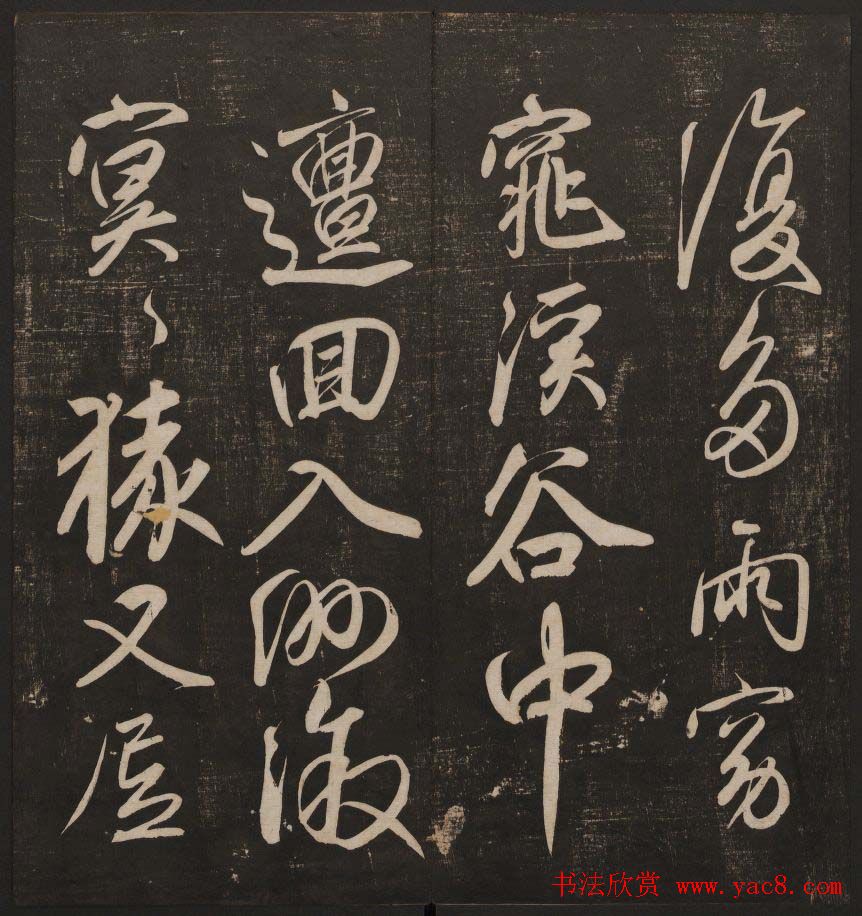 復多雨窈
窕溪谷中
邅回入洲漵
冥〻猿又
书法欣赏 www.yac8.com